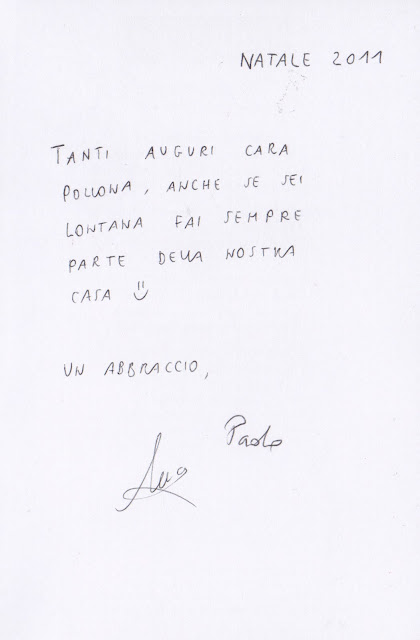 NATALE 2011
TANTI AUGURI CARA
POLLONA, ANCHE SE SEI
LONTANA FAI SEMPRE
PARTE DELLA NOSTRA
CASA
UN ABBRACCIO,
Paolo